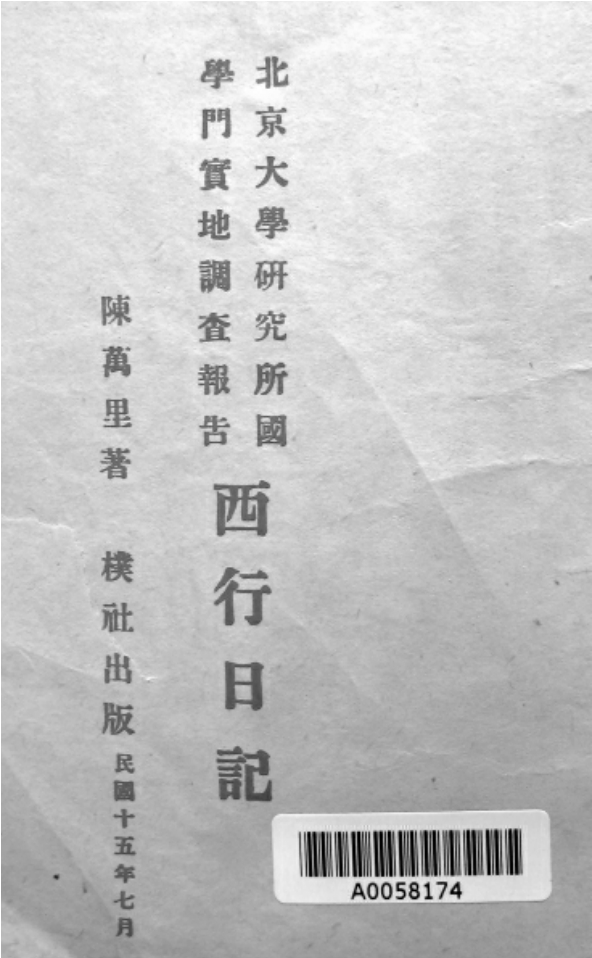 北京大學研究所國
學門實地調查報告
西行日記
陳萬里著
樸社出版
民國十五年七月
A0058174